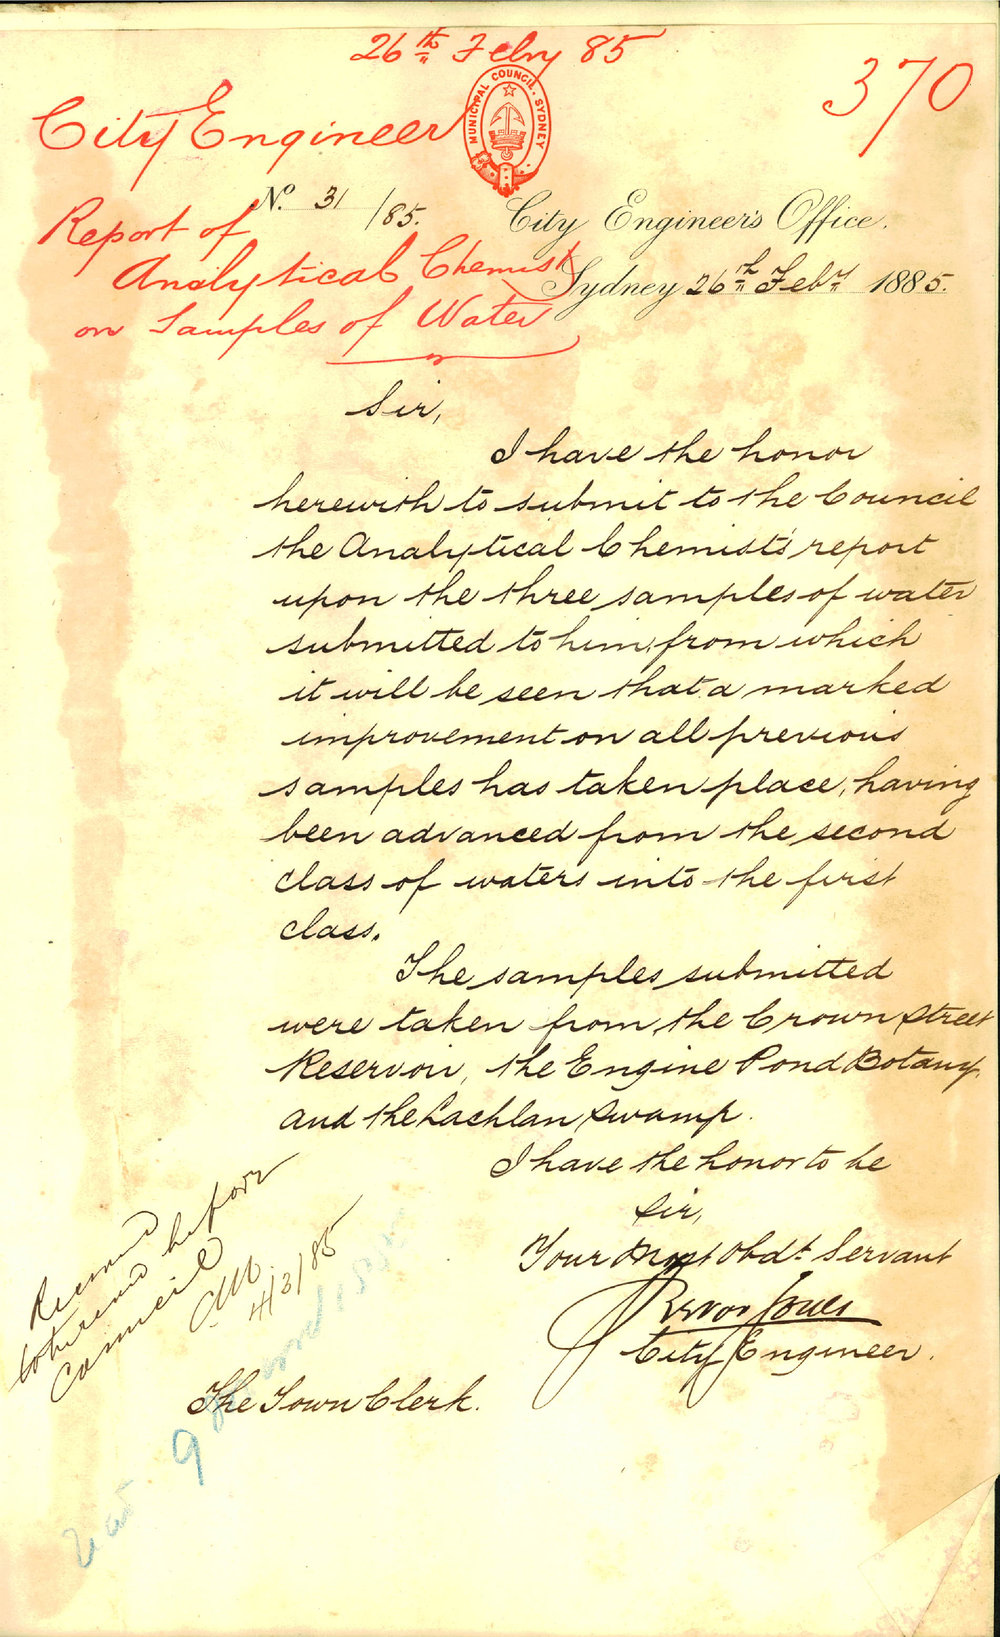 26th Febry 85
370
MUNICIPAL COUNCIL. SYDNEY
City Engineer
No. 31 /85.
City Engineer's Office.
Report of
Analytical Chemist
on Samples of Water
Sydney 26th Feby 1885.
Sir,
I have the honor
herewith to submit to the Council
the Analytical Chemist's report
upon the three samples of water
submitted to him, from which
it will be seen that a marked
improvement on all previous
samples has taken place, having
been advanced from the second
class of waters into the first
class.
The samples submitted
were taken from the Crown Street
Reservoir, the Engine Pond Botany
and the Lachlan Swamp.
I have the honor to be
Sir,
Your Most Obdt. Servant
Trevor Jones
City Engineer.
before
Council
4/3/85
The Town Clerk.
9